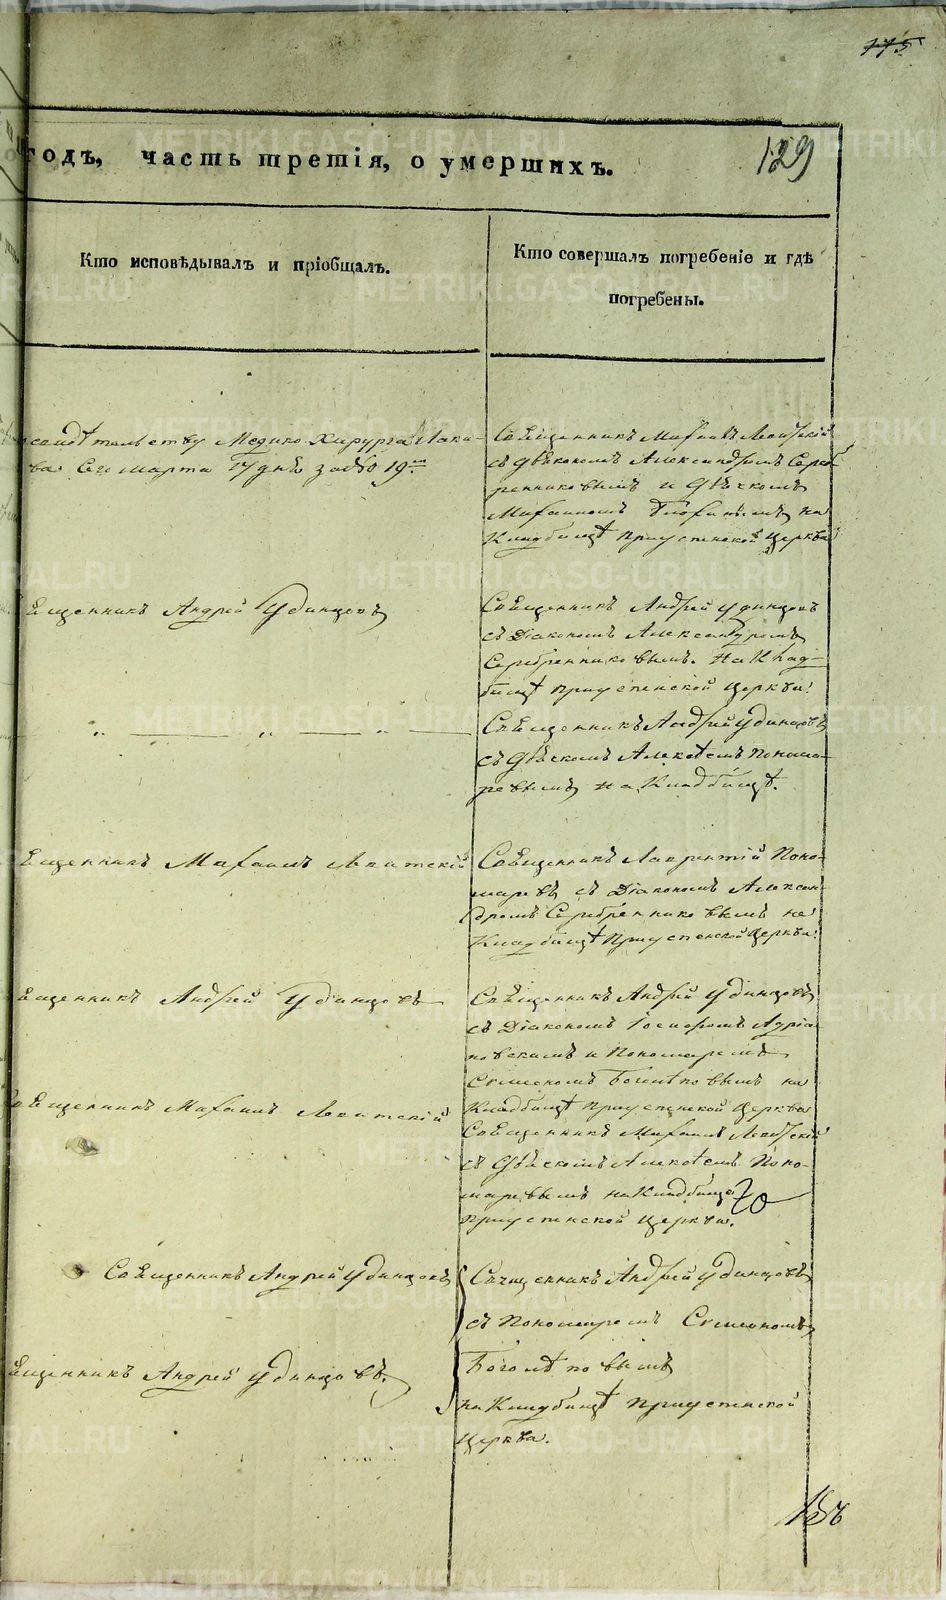 175
годъ, часть третія, о умершихъ.
129
Кто исповѣдывалъ и пріобщалъ.
Кто совершалъ погребеніе и гдѣ
погребены.
свидѣтельству Медико-Хирурга
ва Его марта 17 дня за № 19
Священникъ Михаилъ Левитскій
съ дьякономъ Александромъ Сереб
ренниковымъ и дьячкомъ
Михаиломъ на
Кладбищѣ Приуспенской Церкви
вященникъ Андрей Удинцовъ
Священникъ Андрей Удинцовъ
съ Діакономъ Александромъ
Серебренниковымъ. На Клад-
бищѣ Приуспенской Церкви.
„ „ „
Священникъ Андрей Удинцовъ
съ дьячкомъ Алексѣемъ Понома-
ревымъ на Кладбищѣ.
вященникъ Михаилъ Левитскій
Священникъ Лаврентій Поно-
маревъ, съ Діакономъ Алексан-
дромъ Серебренниковымъ на
Кладбищѣ Приуспенской Церкви.
вященникъ Андрей Удинцовъ
Священникъ Андрей Удинцовъ
съ Діакономъ Адріа
новскимъ и Пономаремъ
Симеономъ Боголѣповымъ на
Кладбищѣ Приуспенской Церкви
Священникъ Михаилъ Левитскій
Священникъ Михаилъ Левитскій
съ дьячкомъ Алексѣемъ Поно-
маревымъ на Кладбищѣ
Приуспенской Церкви.
Священникъ Андрей Удинцовъ
Священникъ Андрей Удинцовъ
съ Пономаремъ Симеономъ
вященникъ Андрей Удинцовъ.
Боголѣповымъ
на Кладбищѣ Приуспенской
Церкви.
METRIKI.GASO-URAL.RU